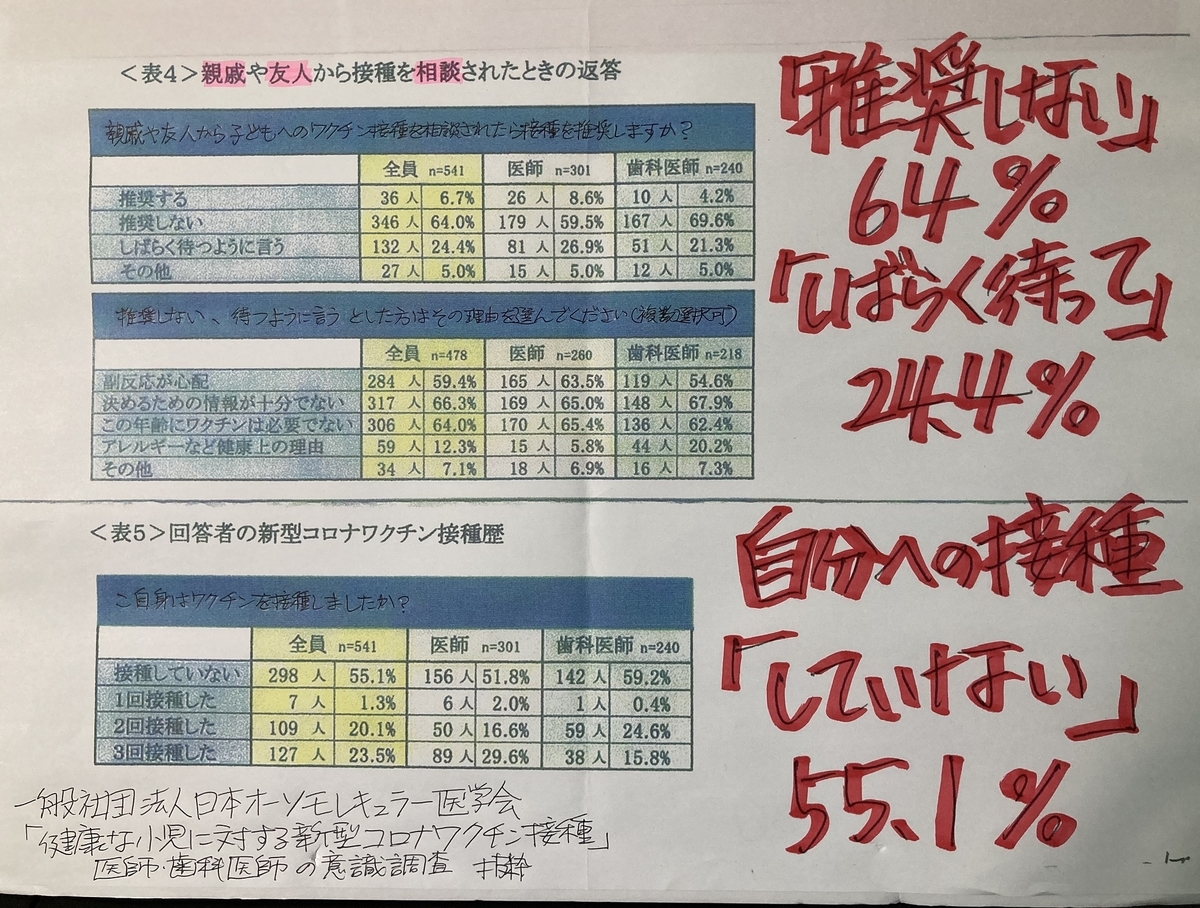 ＜表4＞親戚や友人から接種を相談されたときの返答
親戚や友人から子どもへのワクチン接種を相談されたら接種を推奨しますか?
全員 n=541 医師 n=301 歯科医師 n=240
推奨する 36 人 6.7% 26 人 8.6% 10 人 4.2%
推奨しない 346 人 64.0% 179 人 59.5% 167 人 69.6%
しばらく待つように言う 132 人 24.4% 81 人 26.9% 51 人 21.3%
その他 27 人 5.0% 15 人 5.0% 12 人 5.0%
推奨しない、待つように言う とした方はその理由を選んでください(複数選択可)
全員 n=478 医師 n=260 歯科医師 n=218
副反応が心配 284 人 59.4% 165 人 63.5% 119 人 54.6%
決めるための情報が十分でない 317 人 66.3% 169 人 65.0% 148 人 67.9%
この年齢にワクチンは必要でない 306 人 64.0% 170 人 65.4% 136 人 62.4%
アレルギーなど健康上の理由 59 人 12.3% 15 人 5.8% 44 人 20.2%
その他 34 人 7.1% 18 人 6.9% 16 人 7.3%
「推奨しない」
64%
「しばらく待って」
24.4%
＜表5＞回答者の新型コロナワクチン接種歴
ご自身はワクチンを接種しましたか?
全員 n=541 医師 n=301 歯科医師 n=240
接種していない 298 人 55.1% 156 人 51.8% 142 人 59.2%
1回接種した 7 人 1.3% 6 人 2.0% 1 人 0.4%
2回接種した 109 人 20.1% 50 人 16.6% 59 人 24.6%
3回接種した 127 人 23.5% 89 人 29.6% 38 人 15.8%
自分への接種
「していない」
55.1%
一般社団法人日本オーソモレキュラー医学会
「健康な小児に対する新型コロナワクチン接種」
医師・歯科医師の意識調査 抜粋